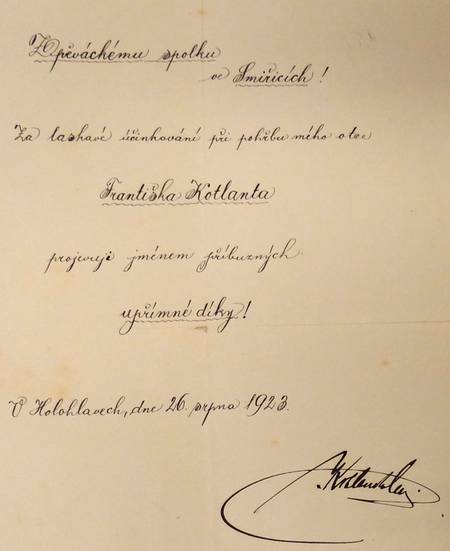 Zpěváckému spolku
ve Smiřicích!
Za laskavé účinkování při pohřbu mého otce
Františka Kotlanta
projevuji jménem příbuzných
upřímné díky!
V Holohlavech, dne 26. srpna 1923.